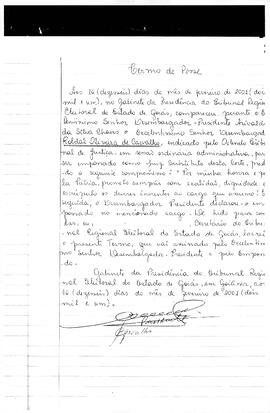 Termo de Posse
Aos 16 (dezesseis) dias do mês de fevereiro de 2001 (dois
mil e um), no Gabinete da Presidência do Tribunal Regio
Eleitoral do Estado de Goiás, compareceu perante o E
Senhor Desembargador - Presidente
da Silva o Excelentíssimo Senhor Desembargad
Roldão Oliveira de Carvalho, indicado pelo Tribu
nal de Justiça, em sessão ordinária administrativa, par
ser empossado como Juiz Substituto desta Corte, prest
do o seguinte compromisso: "Por minha honra e p
la Pátria, prometo cumprir com lealdade, dignidade e
os deveres inerentes ao cargo que assumo". E
seguida, o Desembargador Presidente declarou-o em
possado no mencionado cargo. De tudo para con
tar, eu, Secretário do Tribu
nal Regional Eleitoral do Estado de Goiás, lavrei
o presente Termo, que vai assinado pelo Excelentíssi
mo Senhor Desembargador Presidente e pelo empossa
do.
Gabinete da Presidência do Tribunal Regio
nal Eleitoral do Estado de Goiás, em Goiânia, aos
16 (dezesseis) dias do mês de fevereiro de 2001 (dois
mil e um).